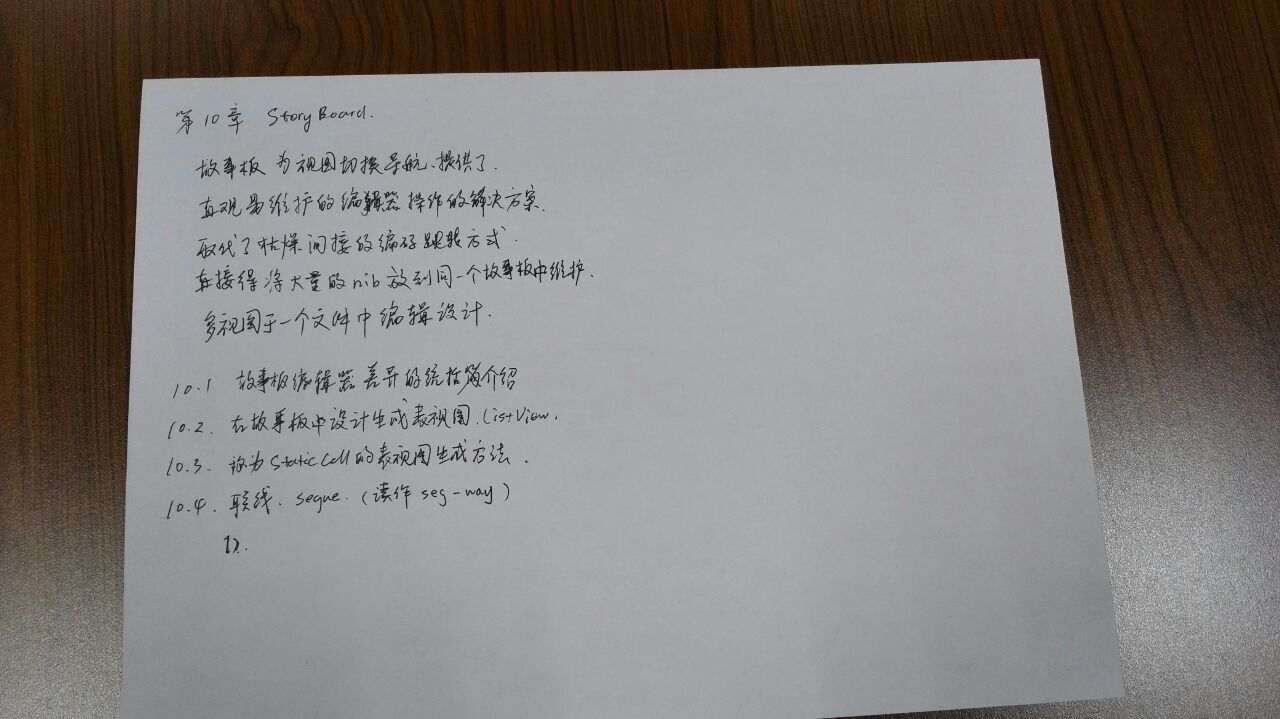 第10章 StoryBoard.
故事板 为视图切换导航、提供了.
直观易维护的编辑器操作的解决方案.
取代了枯燥间接的编码跳转方式.
直接得将大量的nib放到同一个故事板中维护.
多视图于一个文件中编辑设计.
10.1 故事板编辑器差异的统括简介绍
10.2. 在故事板中设计生成表视图.ListView.
10.3. 设为StaticCell的表视图生成方法.
10.4. 联线. segue. (读作 seg-way)
1).